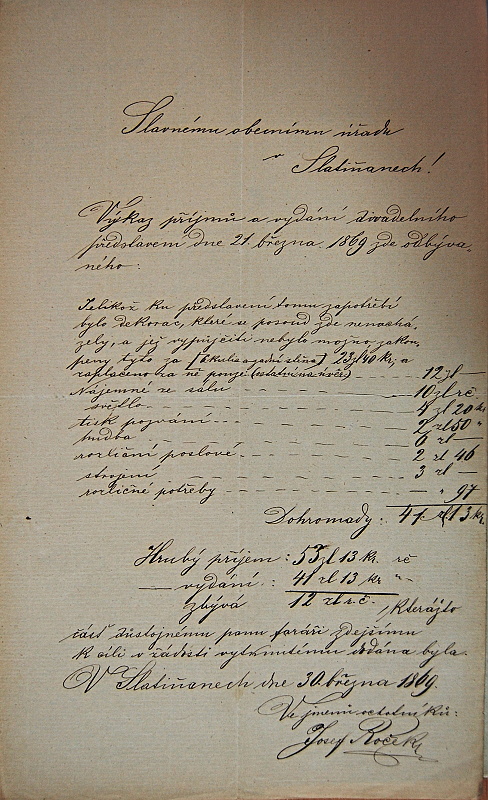 Slavnému obecnímu úřadu
v
Slatiňanech!
Výkaz příjmů a vydání divadelního
představení dne 21. března 1869 zde odbýva-
ného:
Jelikož ku představení tomu zapotřebí
bylo dekorac, které se posud zde nenachá-
zely, a jež vypůjčiti nebylo možno, zakou-
peny tyto za 23 zl 40 kr, a
zaplaceno na ně pouze (ostatní na úvěr) - - 12 zl —
Nájemné ze sálu - - - 10 zl rč
světlo - - - 4 zl 20 kr
tisk pozvání - - - 2 zl 50 "
hudba - - - 6 zl —
roznášení poslové - - - 2 zl 46
strojení - - - 3 zl —
rozličné potřeby - - - " 97
Dohromady: 41 zl 13 kr.
Hrubý příjem: 53 zl 13 kr. rč
— vydání: 41 zl 13 kr "
zbývá 12 zl r. č., kterážto
část důstojnému panu faráři zdejšímu
k cíli v žádosti vytknutému dodána byla.
V Slatiňanech dne 30. března 1869.
Ve jménu ochotníků:
Josef Roček